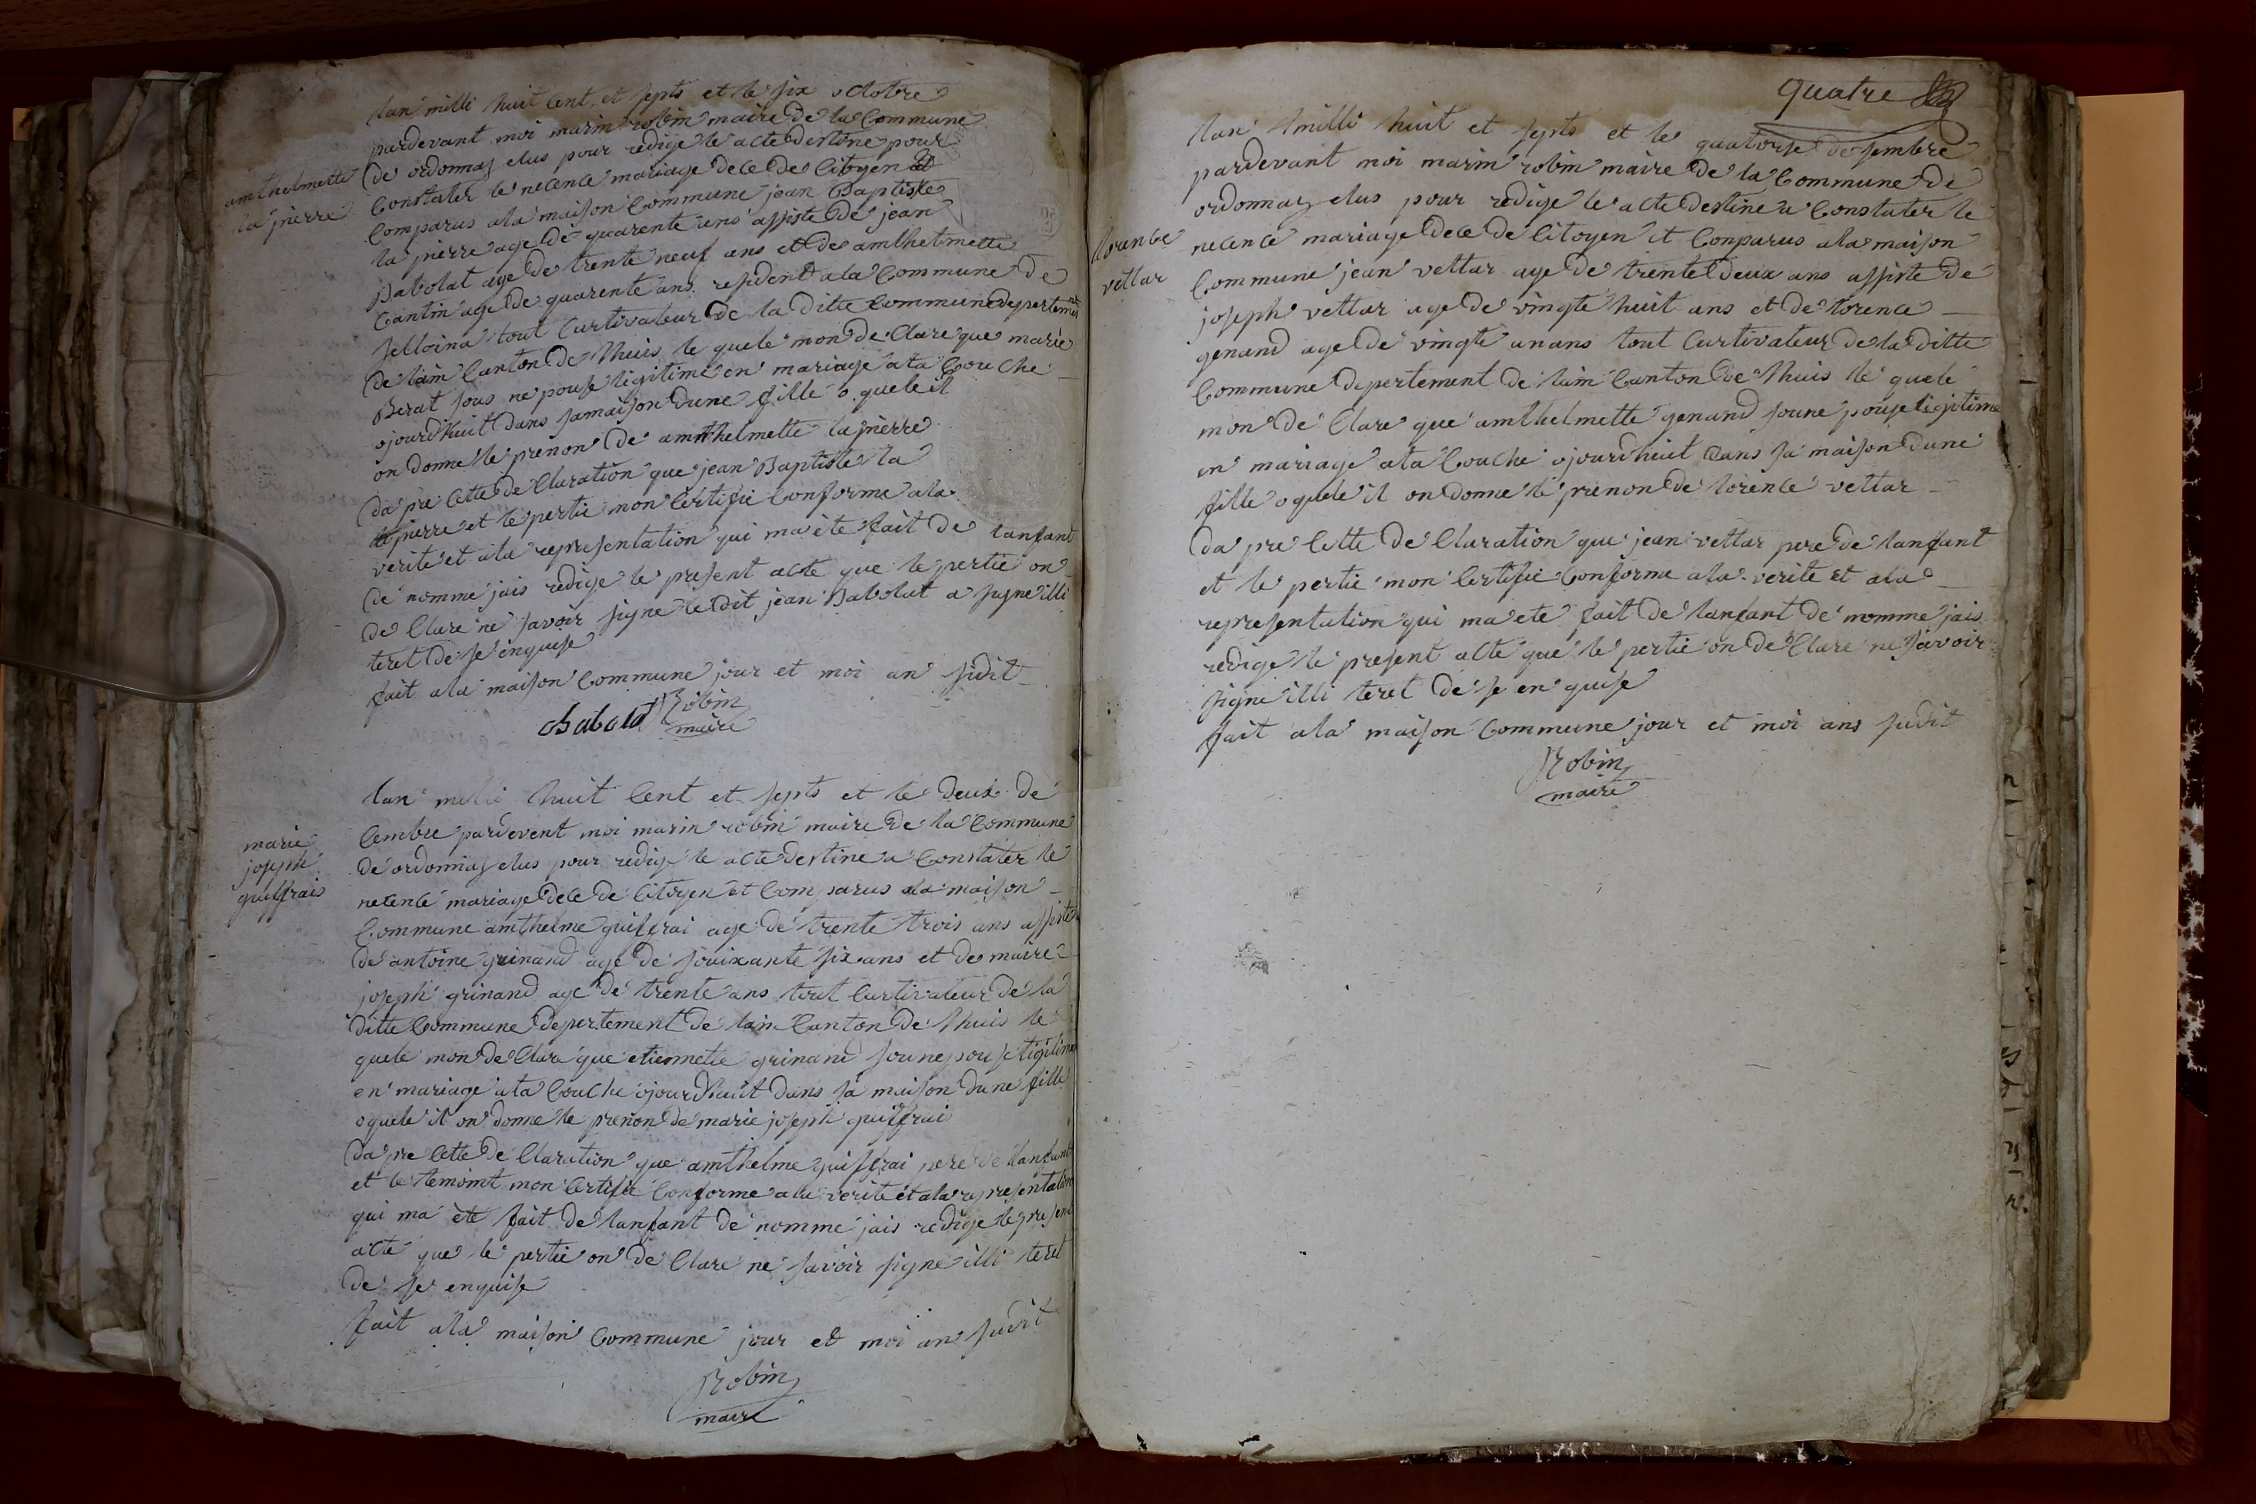 amthelmette
la pierre
lan milli huit Cent et septs et le six octobre
pardevant moi marin robin maire de la Commune
de ordonnaz elus pour redige le acte destine pour
Constater le necence mariage dece de Citoyen et
Comparus ala maison Commune jean Baptiste
la pierre age de quarente ans assiste de jean
Babolat age de trente neuf ans et de amthelmette
Cantin age de quarente ans resident ala Commune de
tout Curtivateur de la ditte Commune depertement
de lain Canton de lhuis le quele mon de Clare que marie
Berat sous ne pouse legitime en mariage ata Couche
ojourdhuit dans samaison dune fille o quele il
on donne le prenon de amthelmette la pierre
da pre Cette de Claration que jean Baptiste la
pierre et le pertie mon Certifie Conforme ala
verite et ala representation qui ma ete fait de lanfant
de nomme jais redige le present acte que le pertie on
de Clare ne savoir signe le dit jean Babolat a signe illi
teret de se enquise
fait ala maison Commune jour et moi an sudit
Babolat Robin
maire
marie
joseph
guiffrais
lan milli huit Cent et septs et le deux de
Cembre pardevent moi marin robin maire de la Commune
de ordonnaz elus pour redige le acte destine a Constater le
necence mariage dece de Citoyen et Comparus ala maison
Commune amthelme guiffrai age de trente trois ans assiste
de antoine grinand age de souixante six ans et de maire
joseph grinand age de trente ans tout Curtivateur de la
ditte Commune depertement de lain Canton de lhuis le
quele mon de Clare que etiennette grinand soune pouse legitime
en mariage ata Couche ojourdhuit dans sa maison dune fille
oquele il on donne le prenon de marie joseph guiffrai
da pre Cette de Claration que amthelme guiffrai pere de lanfant
et le temoint mon Certifie Conforme ala verite et ala representation
qui ma ete fait de lanfant de nomme jais redige le present
acte que le pertie on de Clare ne savoir signe illi teret
de se enquise
fait ala maison Commune jour et moi an sudit
Robin
maire
quatre
lorence
vettar
lan milli huit et septs et le quatorse desembre
pardevant moi marin robin maire de la Commune de
ordonnaz elus pour redige le acte destine a Constater le
necence mariage dece de Citoyen et Conparus ala maison
Commune jean vettar age de trente deux ans assiste de
joseph vettar age de vingte huit ans et de lorence
genand age de vingte un ans tout Curtivateur de la ditte
Commune depertement de lain Canton de lhuis le quele
mon de Clare que amthelmette genand soune pouse legitime
en mariage ata Couche ojourdhuit dans sa maison dune
fille o quele il on donne le prenon de lorence vettar
da pre Cette de Claration que jean vettar pere de lanfant
et le pertie mon Certifie Conforme ala verite et ala
representation qui ma ete fait de lanfant de nomme jais
redige le present acte que le pertie on de Clare ne savoir
signe illi teret de se en quise
fait ala maison Commune jour et moi ans sudit
Robin
maire